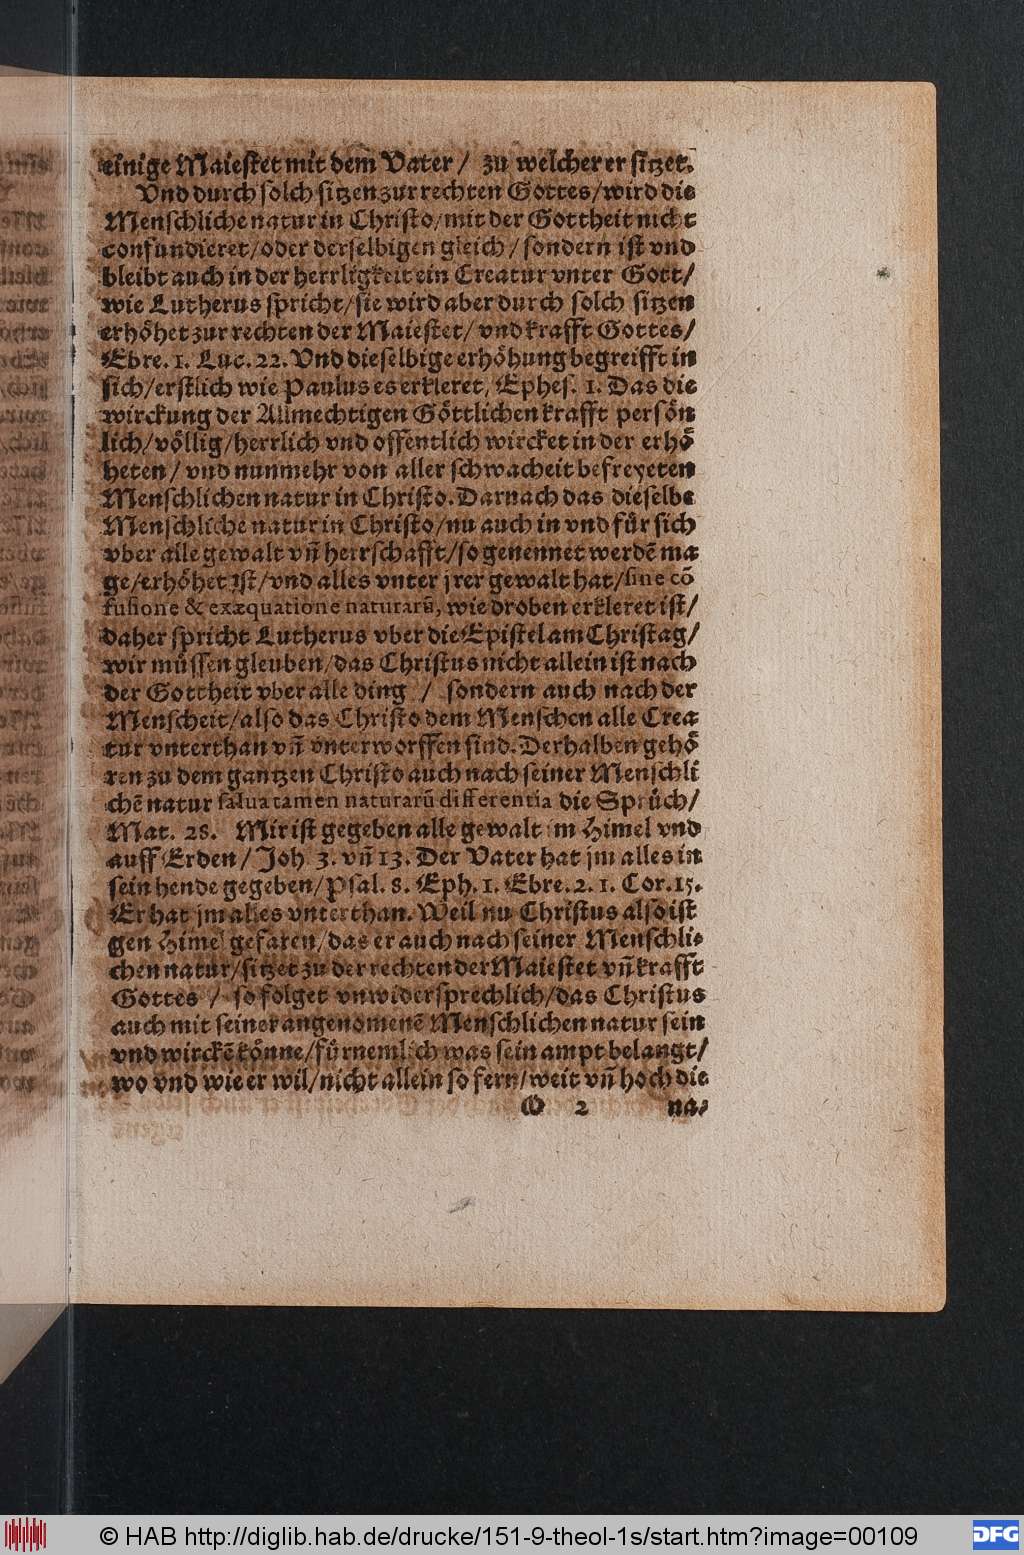 einige Maiestet mit dem Vater / zu welcher er sitzet.
Vnd durch solch sitzen zur rechten Gottes/wird die
Menschliche natur in Christo/mit der Gottheit nicht
confundieret/oder derselbigen gleich/sondern ist vnd
bleibt auch in der herrligkeit ein Creatur vnter Gott/
wie Lutherus spricht/sie wird aber durch solch sitzen
erhöhet zur rechten der Maiestet/vnd krafft Gottes/
Ebre. 1. Luc. 22. Vnd dieselbige erhöhung begreifft in
sich/erstlich wie Paulus es erkleret/Ephes. 1. Das die
wirckung der Allmechtigen Göttlichen krafft persön
lich/völlig/herrlich vnd offentlich wircket in der erhö
heten/vnd nunmehr von aller schwacheit befreyeten
Menschlichen natur in Christo. Darnach das dieselbe
Menschliche natur in Christo/nu auch in vnd für sich
vber alle gewalt vñ herrschafft/so genennet werdē ma
ge/erhöhet ist/vnd alles vnter jrer gewalt hat/sine cō
fusione & exæquatione naturarū, wie droben erkleret ist/
daher spricht Lutherus vber die Epistel am Christag/
wir müssen gleuben/das Christus nicht allein ist nach
der Gottheit vber alle ding / sondern auch nach der
Menscheit/also das Christo dem Menschen alle Crea
tur vnterthan vñ vnterworffen sind. Derhalben gehö
ren zu dem gantzen Christo auch nach seiner Menschli
chē natur salua tamen naturarū differentia die Sprüch/
Mat. 28. Mir ist gegeben alle gewalt im Himel vnd
auff Erden/Joh. 3. vñ 13. Der Vater hat jm alles in
sein hende gegeben/Psal. 8. Eph. 1. Ebre. 2. 1. Cor. 15.
Er hat jm alles vnterthan. Weil nu Christus also ist
gen Himel gefaren/das er auch nach seiner Menschli-
chen natur/sitzet zu der rechten der Maiestet vñ krafft
Gottes / so folget vnwidersprechlich/das Christus
auch mit seiner angenomenē Menschlichen natur sein
vnd wirckē könne/fürnemlich was sein ampt belangt/
wo vnd wie er wil/nicht allein so fern/weit vñ hoch die
O 2 na-
© HAB http://diglib.hab.de/drucke/151-9-theol-1s/start.htm?image=00109
DFG